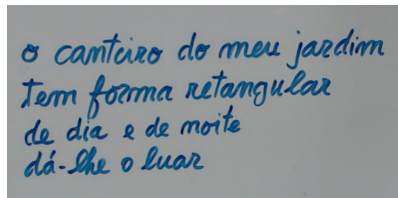 o canteiro do meu jardim
tem forma retangular
de dia e de noite
dá-lhe o luar